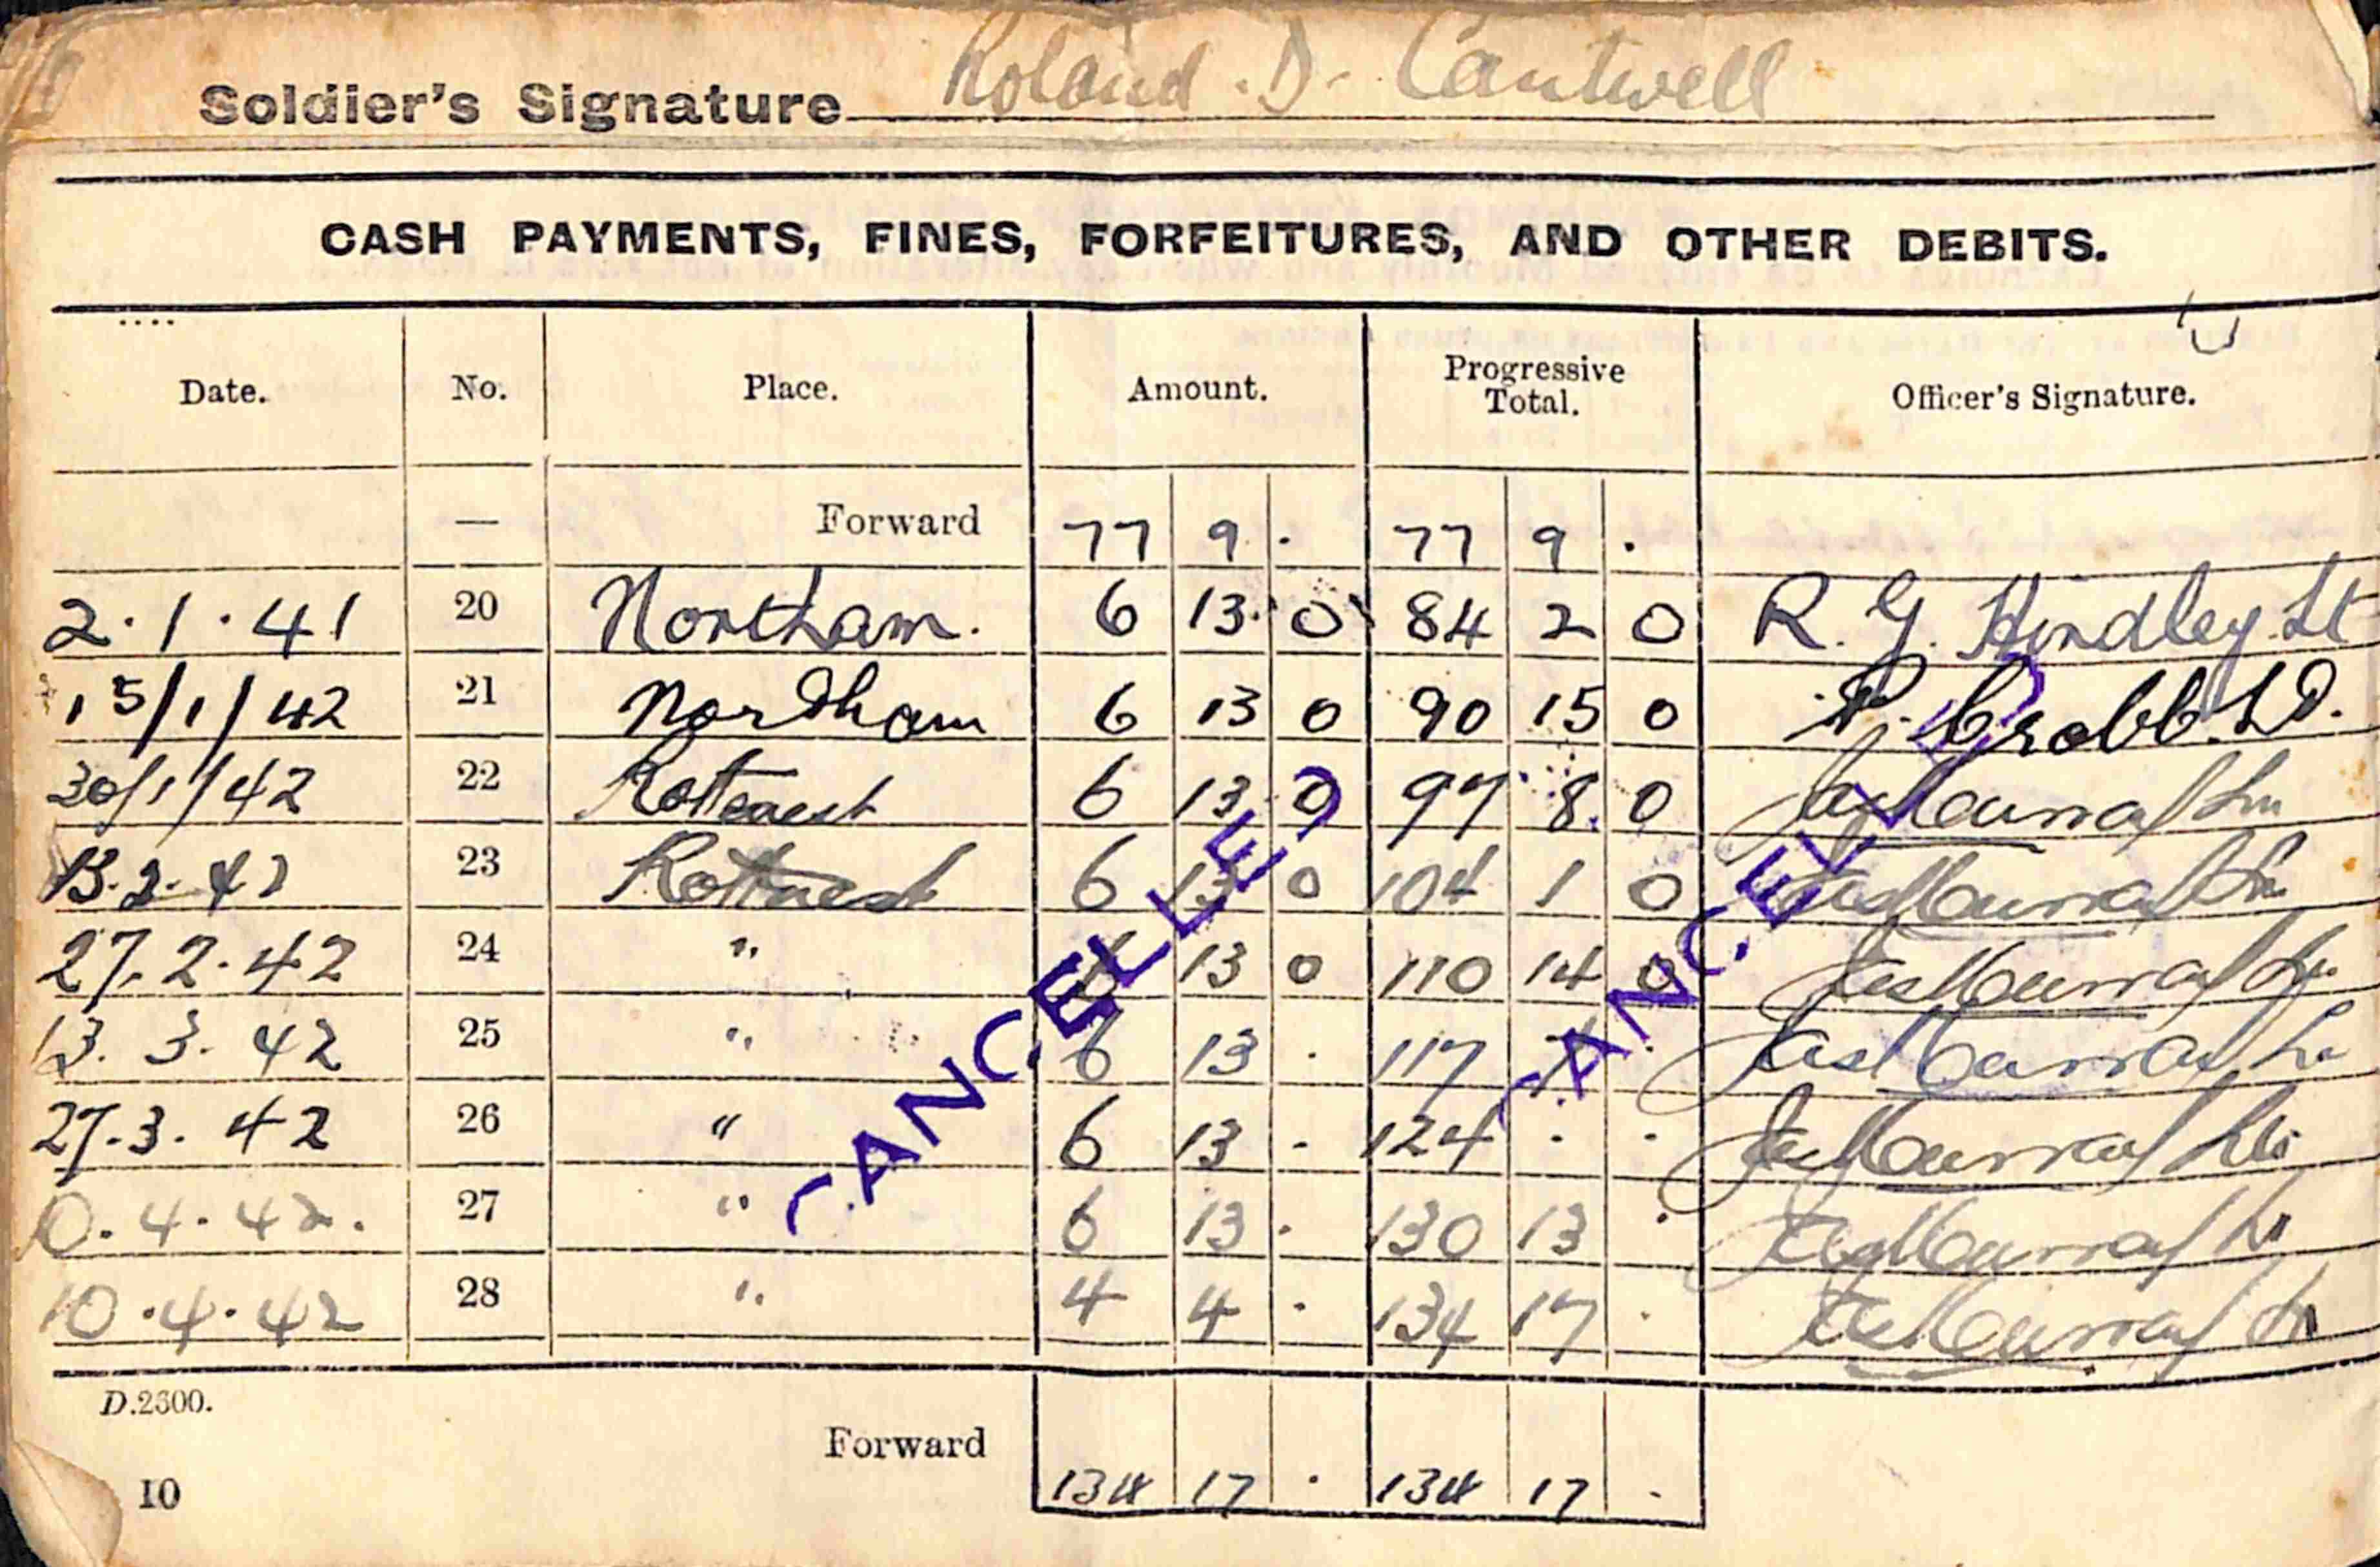 Soldier's Signature Roland . D. Cantwell
CASH PAYMENTS, FINES, FORFEITURES, AND OTHER DEBITS.
Date. No. Place. Amount. Progressive Total. Officer's Signature.
— Forward 77 9 . 77 9 .
2.1.41 20 Northam. 6 13 0 84 2 0 R. G. Hindley Lt
15/1/42 21 Nordham 6 13 0 90 15 0
30/1/42 22 Rottnest 6 13 0 97 8. 0 Murray
13.2.42 23 Rottnest 6 13 0 104 1 0 Murray
27.2.42 24 " 6 13 0 110 14 0 Jas Murray
13.3.42 25 " 6 13 . 117 7 . Jas Murray
27.3.42 26 " 6 13 - 124 . . Murray
0.4.42. 27 " 6 13 . 130 13 . Murray
10.4.42 28 " 4 4 . 134 17 . Murray
CANCELLED
CANCELLED
D.2600.
Forward 134 17 . 134 17 .
10